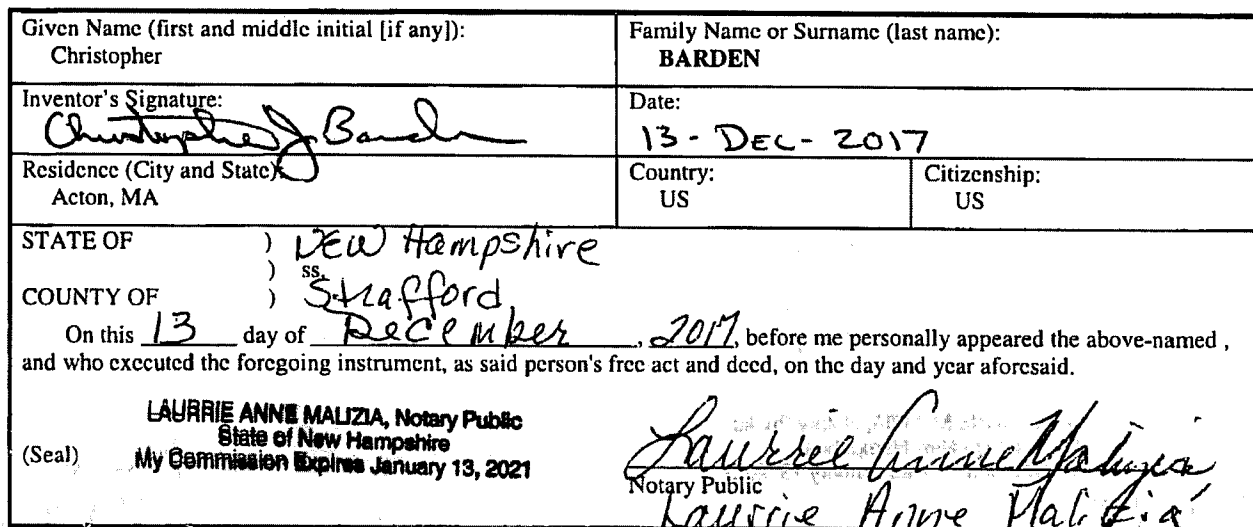 Given Name (first and middle initial [if any]):
Christopher
Family Name or Surname (last name):
BARDEN
Inventor's Signature:
Christopher J Barden
Date:
13 - DEC - 2017
Residence (City and State):
Acton, MA
Country:
US
Citizenship:
US
STATE OF ) NEW Hampshire
) ss.
COUNTY OF ) Strafford
On this 13 day of December, 2017, before me personally appeared the above-named ,
and who executed the foregoing instrument, as said person's free act and deed, on the day and year aforesaid.
LAURRIE ANNE MALIZIA, Notary Public
State of New Hampshire
(Seal) My Commission Expires January 13, 2021
Laurrie Anne Malizia
Notary Public
Laurrie Anne Malizia